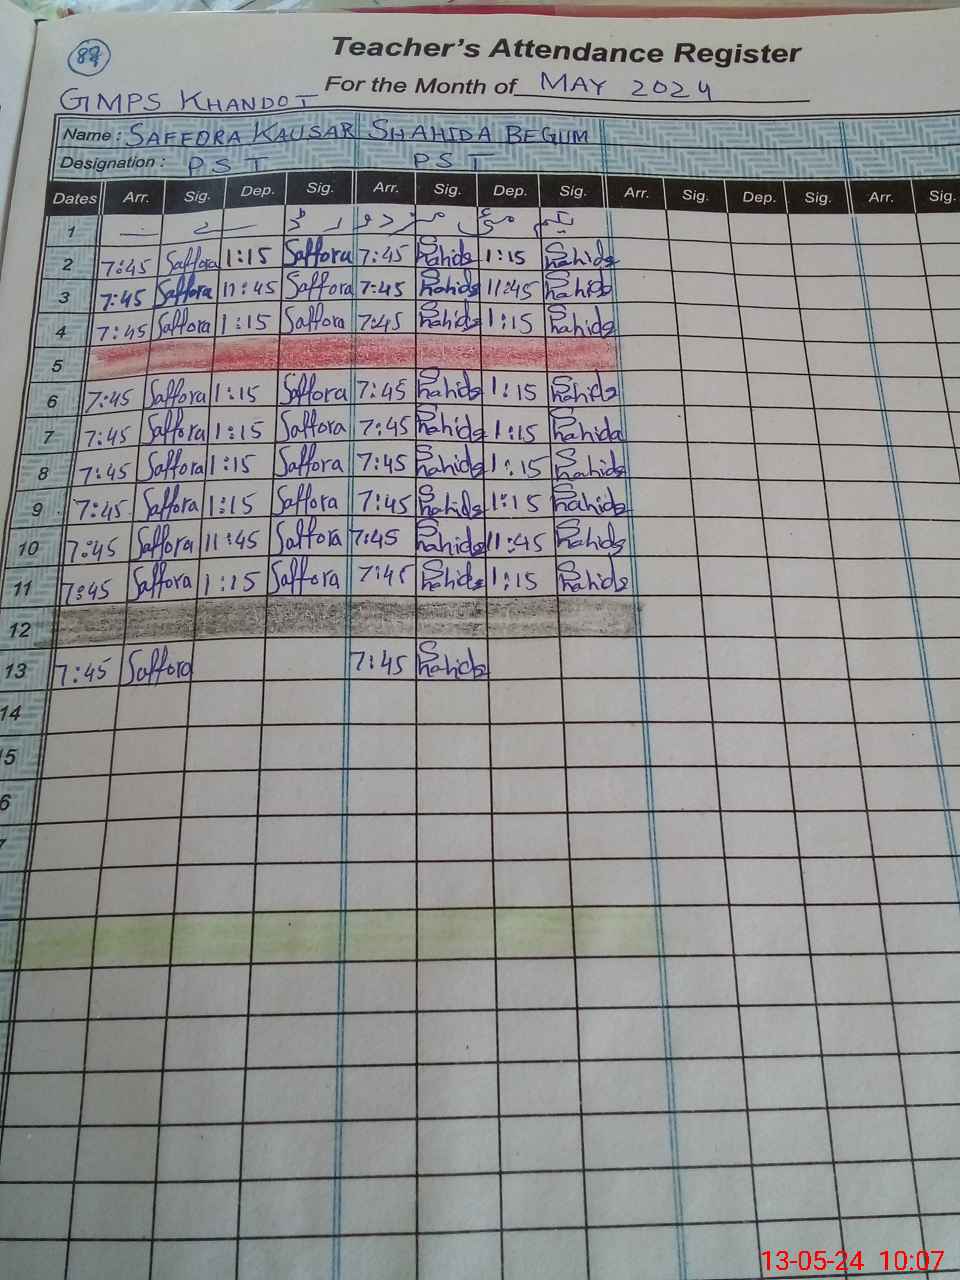 84
Teacher's Attendance Register
For the Month of MAY 2024
GMPS KHANDOT
Name : SAFFORA KAUSAR SHAHIDA BEGUM
Designation : P S T P S T
Dates Arr. Sig. Dep. Sig. Arr. Sig. Dep. Sig. Arr. Sig. Dep. Sig. Arr. Sig.
1
2 7:45 Saffora 1:15 Saffora 7:45 Shahida 1:15 Shahida
3 7:45 Saffora 11:45 Saffora 7:45 Shahida 11:45 Shahida
4 7:45 Saffora 1:15 Saffora 7:45 Shahida 1:15 Shahida
5
6 7:45 Saffora 1:15 Saffora 7:45 Shahida 1:15 Shahida
7 7:45 Saffora 1:15 Saffora 7:45 Shahida 1:15 Shahida
8 7:45 Saffora 1:15 Saffora 7:45 Shahida 1:15 Shahida
9 7:45 Saffora 1:15 Saffora 7:45 Shahida 1:15 Shahida
10 7:45 Saffora 11:45 Saffora 7:45 Shahida 11:45 Shahida
11 7:45 Saffora 1:15 Saffora 7:45 Shahida 1:15 Shahida
12
13 7:45 Saffora 7:45 Shahida
14
5
6
7
13-05-24 10:07